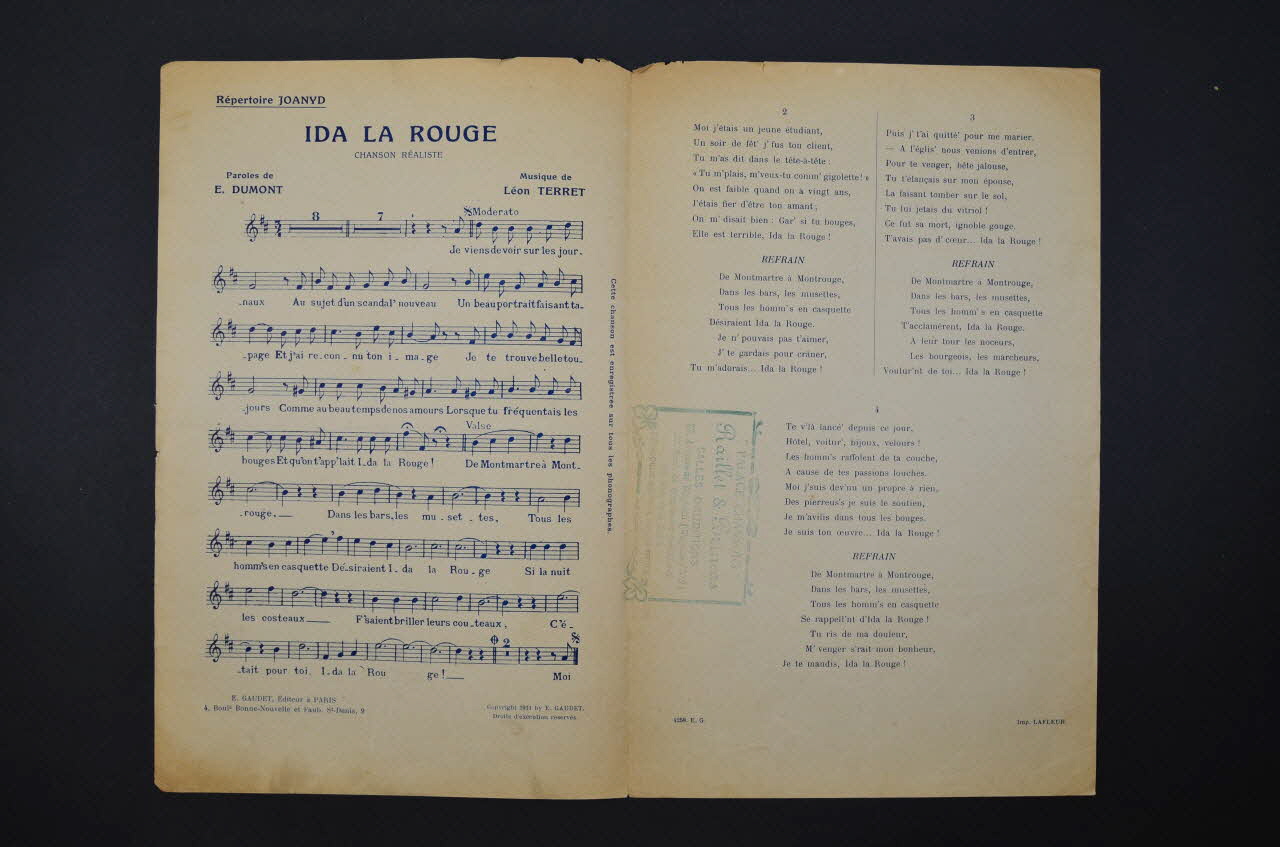 Répertoire JOANYD
IDA LA ROUGE
CHANSON RÉALISTE
Paroles de
E. DUMONT
Musique de
Léon TERRET
8 7 Moderato
Je viens de voir sur les jour-
-naux Au sujet d'un scandal' nouveau Un beau portrait faisant ta-
-page Et j'ai re-con-nu ton i-ma-ge Je te trouve belle tou-
-jours Comme au beau temps de nos amours Lorsque tu fréquentais les
Valse
bouges Et qu'on t'app'lait I-da la Rouge! De Montmartre à Mont-
-rouge,__ Dans les bars, les mu-set-tes, Tous les
homm's en casquette Dé-siraient I-da la Rou-ge Si la nuit
les costeaux___ F'saient briller leurs cou-teaux, C'é-
2
-tait pour toi, I-da la Rou ge!__ Moi
E. GAUDET, Éditeur à PARIS
4, Boul^d Bonne-Nouvelle et Faub. S^t-Denis, 2
Copyright 1911 by E. GAUDET.
Droits d'exécution réservés.
Cette chanson est enregistrée sur tous les phonographes.
2
Moi j'étais un jeune étudiant,
Un soir de fêt' j' fus ton client,
Tu m'as dit dans le tête-à-tête :
« Tu m'plais, m'veux-tu comm' gigolette ! »
On est faible quand on a vingt ans,
J'étais fier d'être ton amant ;
On m' disait bien : Gar' si tu bouges,
Elle est terrible, Ida la Rouge !
REFRAIN
De Montmartre à Montrouge,
Dans les bars, les musettes,
Tous les homm's en casquette
Désiraient Ida la Rouge.
Je n' pouvais pas t'aimer,
J' te gardais pour crâner,
Tu m'adorais... Ida la Rouge !
3
Puis j' t'ai quitté' pour me marier.
— A l'églis' nous venions d'entrer,
Pour te venger, bête jalouse,
Tu t'élançais sur mon épouse,
La faisant tomber sur le sol,
Tu lui jetais du vitriol !
Ce fut sa mort, ignoble gouge.
T'avais pas d' cœur... Ida la Rouge !
REFRAIN
De Montmartre à Montrouge,
Dans les bars, les musettes,
Tous les homm's en casquette
T'acclamèrent, Ida la Rouge.
A leur tour les noceurs,
Les bourgeois, les marcheurs,
Voulur'nt de toi... Ida la Rouge !
4
Te v'là lancé' depuis ce jour,
Hôtel, voitur', bijoux, velours !
Les homm's raffolent de ta couche,
A cause de tes passions louches.
Moi j'suis dev'nu un propre à rien,
Des pierreus's je suis le soutien,
Je m'avilis dans tous les bouges.
Je suis ton œuvre... Ida la Rouge !
REFRAIN
De Montmartre à Montrouge,
Dans les bars, les musettes,
Tous les homm's en casquette
Se rappell'nt d'Ida la Rouge !
Tu ris de ma douleur,
M' venger s'rait mon bonheur,
Je te maudis, Ida la Rouge !
4250. E. G.
Imp. LAFLEUR
Raillet &